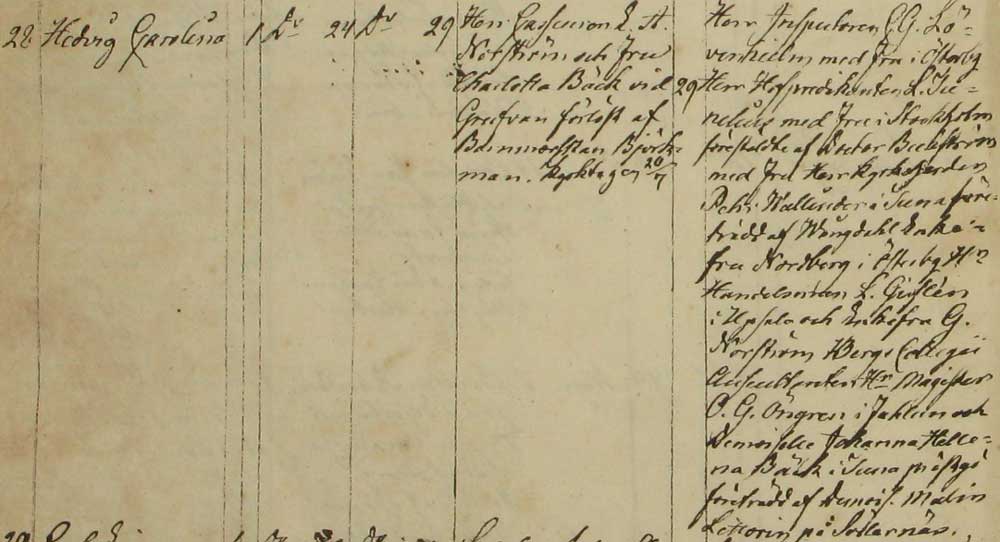 22. Hedvig Carolina 1 Dr 24 Dr 29
Herr Cassieuren L. A.
Norström och fru
Charlotta Bäck vid 29
Grufvan förlöst af
Barnmorskan Björk=
man. Kyrktagen 20/7
Herr Inspectoren C. G. Lö=
venhielm med fru i Österby
Herr Hofpredikanten L. Tu=
nelius med fru i Stockholm
förestäldte af Doctor Beckström
med fru Herr Kyrkoherden
Pehr Wallinder i Tuna före=
trädd af Wongdahl Enke=
fru Nordberg i Österby Hrn
Handelsman L. Gislén
i Upsala och Enkefru G.
Norström Bergs Collegii
Auscultanten Hrn Magister
O. G. Öngren i Fahlun och
Demoiselle Johanna Hele=
na Bäck i Tuna prästgd
företrädd af Demois. Malin
på Söllarnäs.